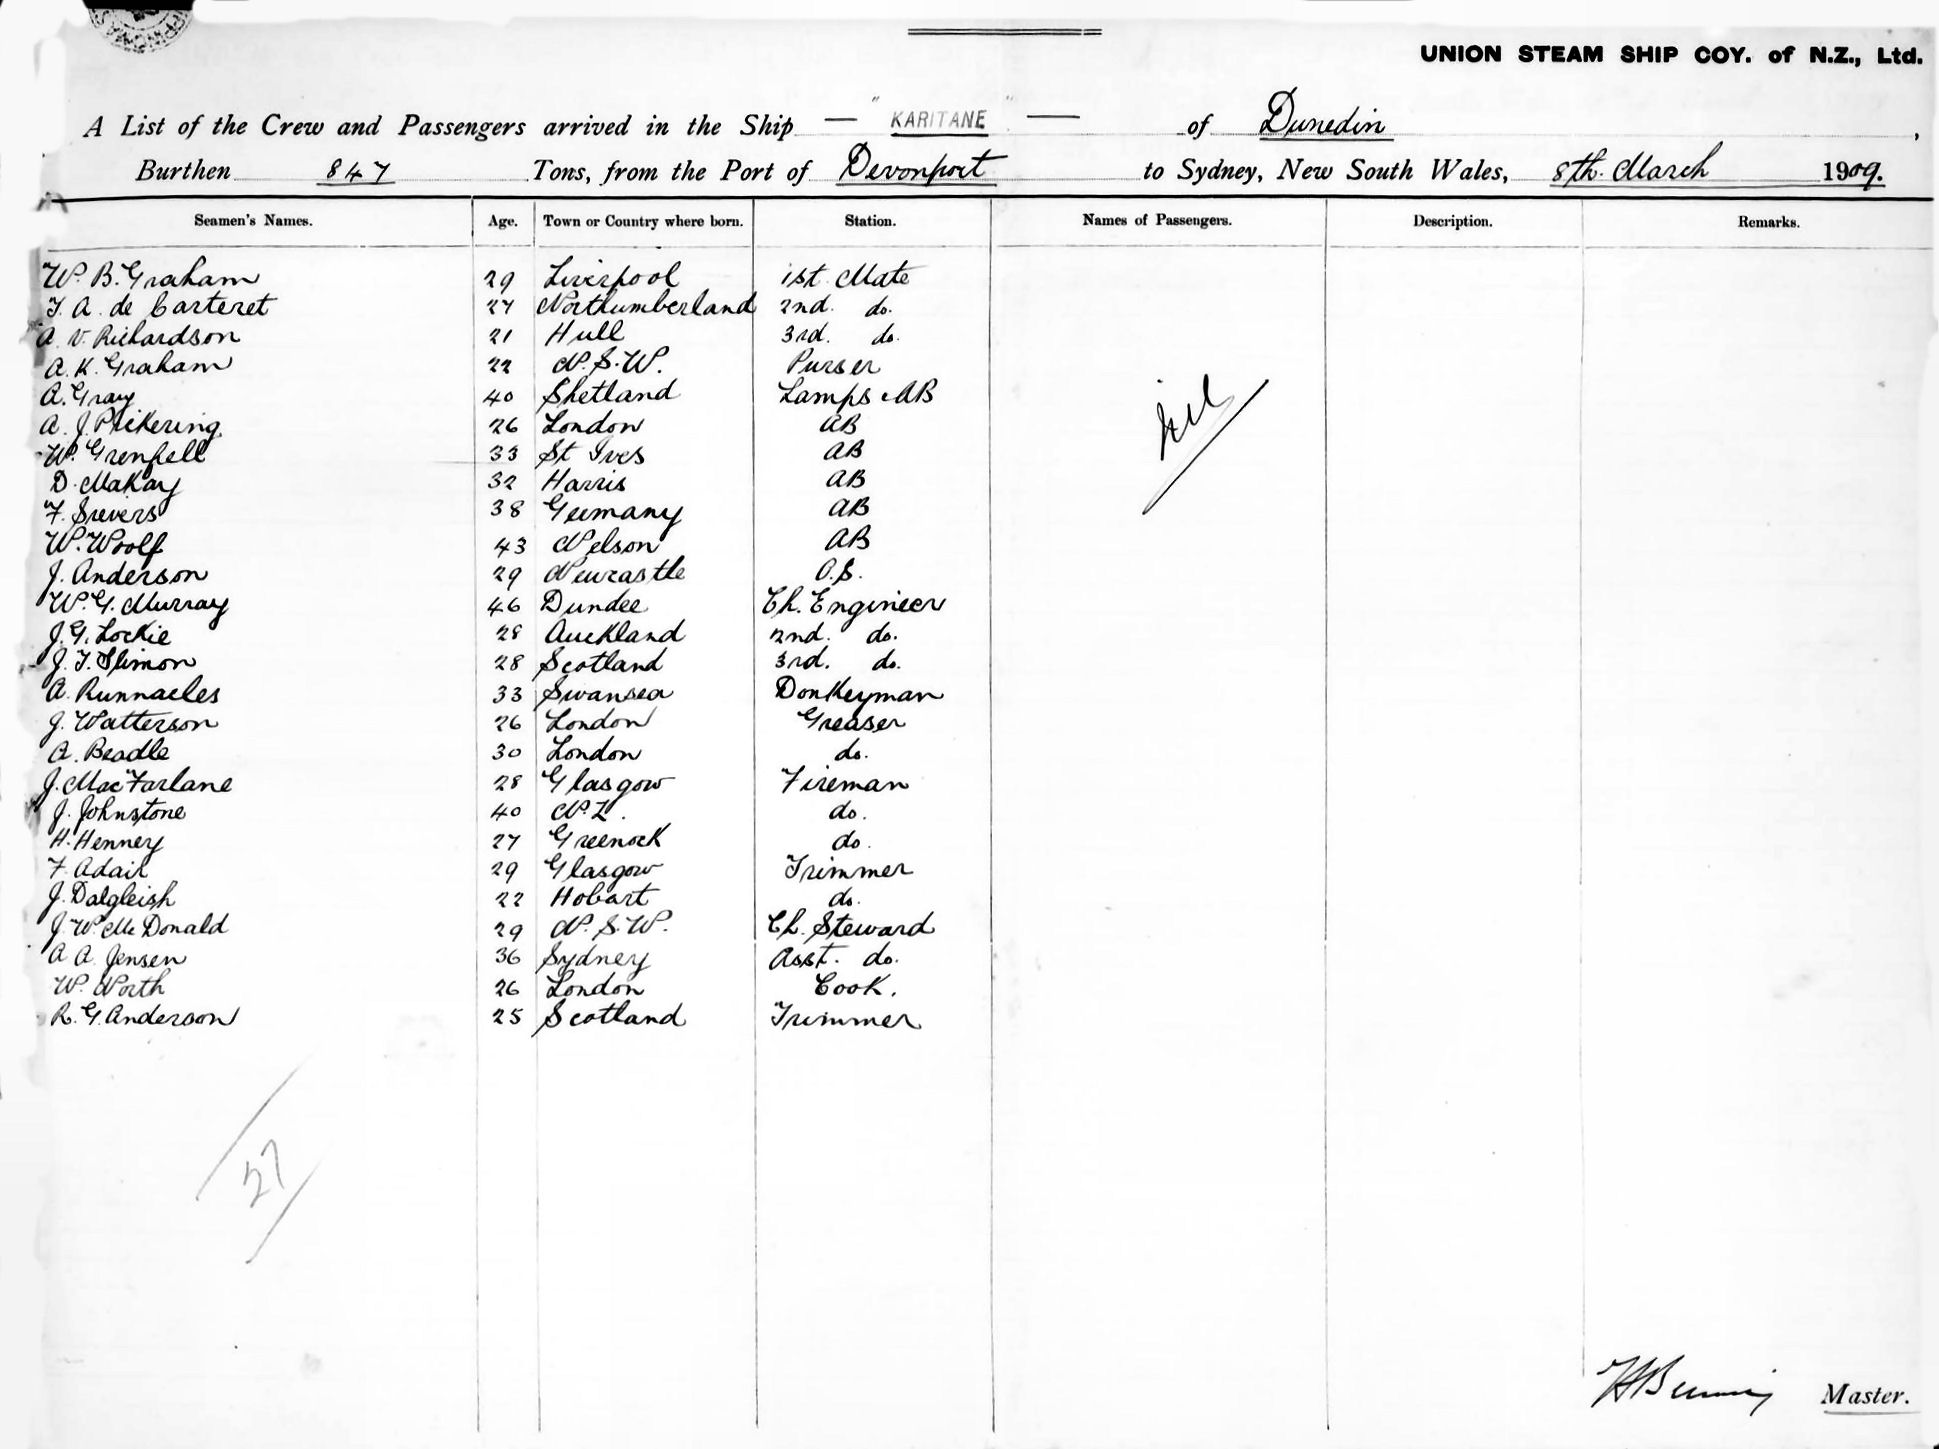 UNION STEAM SHIP COY. of N.Z., Ltd.
A List of the Crew and Passengers arrived in the Ship — "KARITANE" — of Dunedin,
Burthen 847 Tons, from the Port of Devonport to Sydney, New South Wales, 8th. March 1909.
Seamen's Names. Age. Town or Country where born. Station. Names of Passengers. Description. Remarks.
W. B. Graham 29 Liverpool 1st Mate
T. A. de Carteret 27 Northumberland 2nd. do.
A. V. Richardson 21 Hull 3rd. do.
A. K. Graham 22 N.S.W. Purser
A. Gray 40 Shetland Lamps & AB
A. J. Pickering 26 London AB
W. Grenfell 33 St Ives AB
D. MaKay 32 Harris AB
F. Sievers 38 Germany AB
W. Woolf 43 Nelson AB
J. Anderson 29 Newcastle O.S.
W. G. Murray 46 Dundee Ch. Engineer
J. G. Lockie 28 Auckland 2nd. do.
J. T. Slimon 28 Scotland 3rd. do.
A. Runnacles 33 Swansea Donkeyman
J. Watterson 26 London Greaser
A. Beadle 30 London do.
J. MacFarlane 28 Glasgow Fireman
J. Johnstone 40 N.Z. do.
H. Henney 27 Greenock do.
F. Adair 29 Glasgow Trimmer
J. Dalgleish 22 Hobart do.
J. W. Mc Donald 29 N.S.W. Ch. Steward
A. A. Jensen 36 Sydney Asst. do.
W. Worth 26 London Cook.
R. G. Anderson 25 Scotland Trimmer
Nil
27
Master.